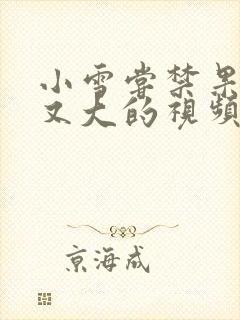 小雪嘗禁果
又大的視頻
京海成